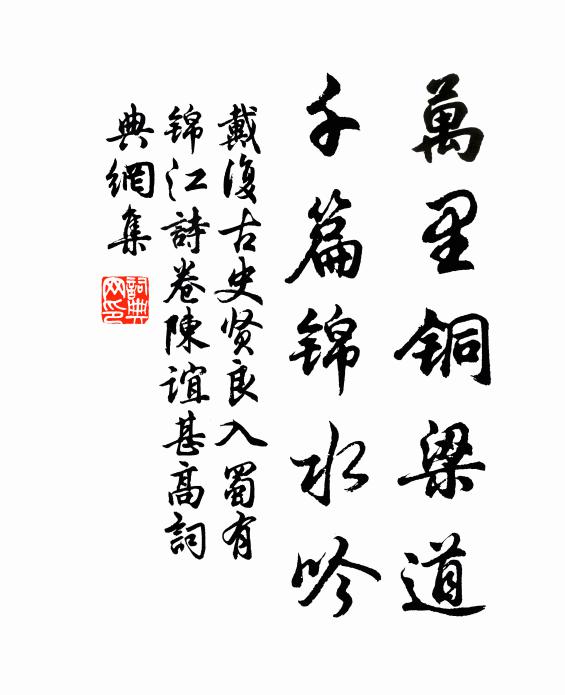 萬里铜梁道
千篇锦水吟
戴復古史贤良入蜀有
锦江詩卷陳誼甚高詞
典網集
詞典
网印